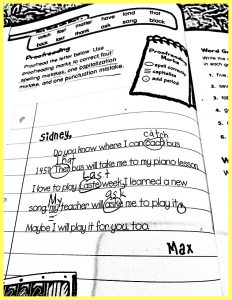 matter have land that
thank ask black
Proofreading
Proofread the letter below. Use
proofreading marks to correct four
spelling mistakes, one capitalization
mistake, and one punctuation mistake.
Proofreading
Marks
spell correctly
capitalize
add period
Word
Sidney,
catch
Do you know where I can bus
That
bus will take me to my piano lesson.
Last
I love to play. Laste week, I learned a new
My ask
song. my teacher will aske me to play it.
Maybe I will play it for you, too.
Max